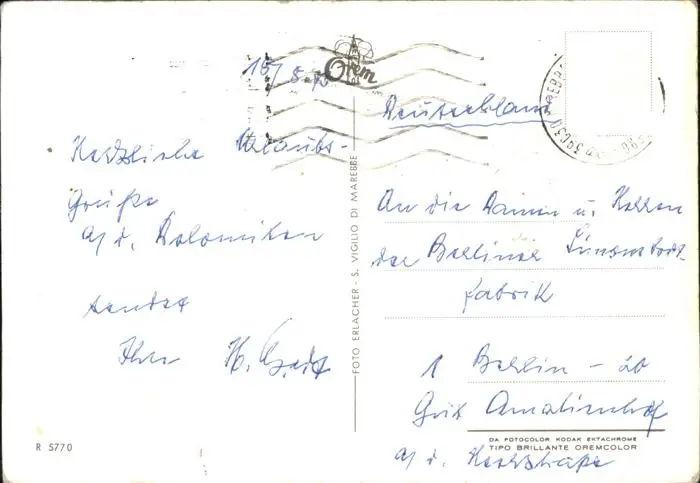 15/8-70
Orem
Deutschland
Herzliche Urlaubs-
Grüße
a/ d. Dolomiten
sendet
Ihr H.
An die Damen u. Herren
der Berliner
fabrik
1 Berlin - 20
Gut Amalienhof
a/ d. Heerstraße
FOTO ERLACHER - S. VIGILIO DI MAREBBE
R 5770
DA FOTOCOLOR KODAK EKTACHROME
TIPO BRILLANTE OREMCOLOR